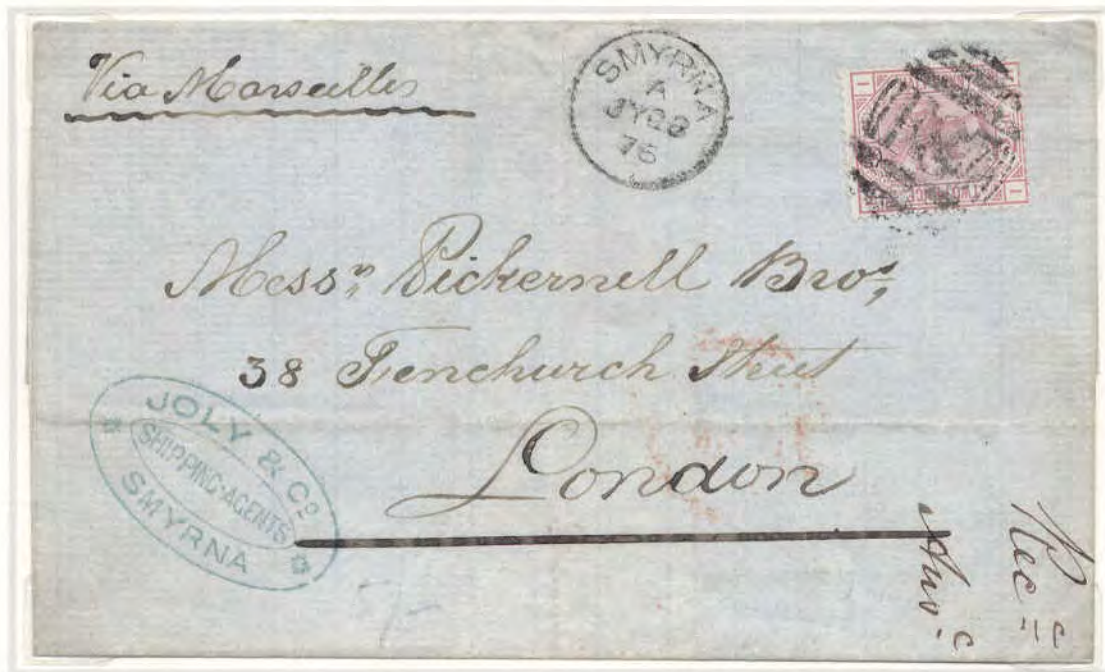 Via Marseilles
SMYRNA
A
JY 28
76
Mess.rs Pickernell Bros,
38 Fenchurch Street
London
JOLY & Co.
SHIPPING-AGENTS
SMYRNA
Rec
Ans.